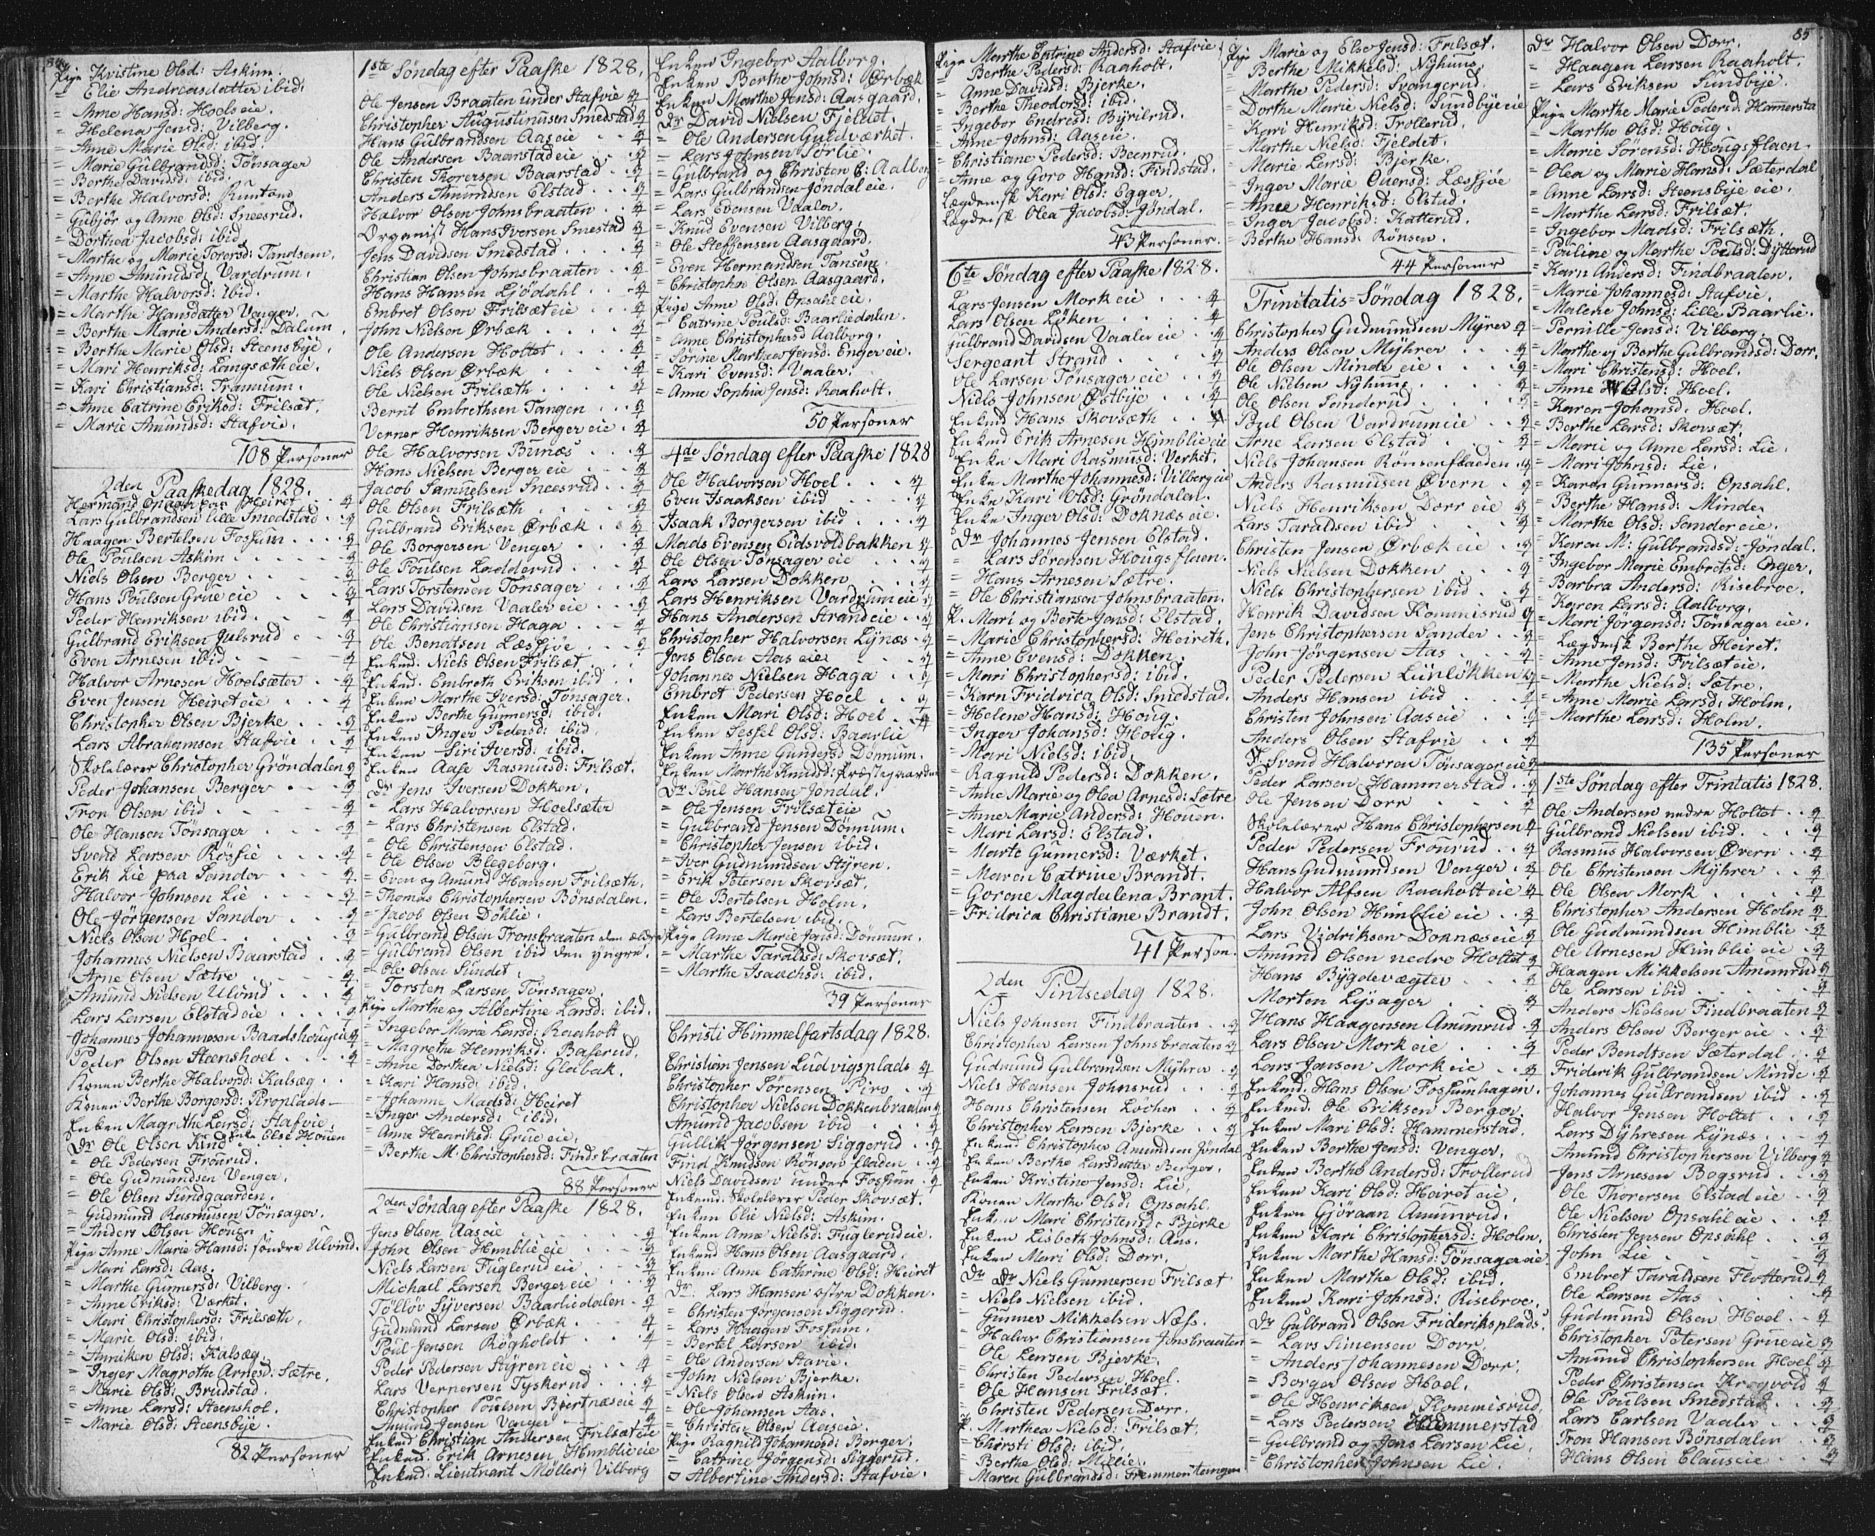 84
Pige Kristine Olsd: Askim.
= Elie Andreasdatter ibid:
= Anne Hansd: Hoels eie.
= Helena Jensd: Vilberg.
= Anne Marie Olsd: ibid.
= Marie Gulbrandsd: Tønsager
= Berthe Davidsd: ibid.
= Berthe Halvorsd: Runtand
= Gubjør og Anne Olsd: Sneesrud.
= Dorthea Jacobsd: ibid
= Marthe og Marie Torersd: Tandsem.
= Anne Amundsd: Vardrum.
= Marthe Halvorsd: ibid.
= Marthe Hansdatter Venger.
= Berthe Marie Andersd: Dalum.
= Berthe Marie Olsd: Steensbÿe.
= Mari Henriksd: Langsæth eie.
= Kari Christiansd: Framum.
= Anne Catrine Eriksd: Frilsæt.
= Marie Amundsd: Stafvie.
108 Personer
2den Paaskedag 1828.
Lars Gulbrandsen lille Smedstad
Haagen Bertelsen Fossum
Ole Poulsen Askim
Niels Olsen Berger
Hans Poulsen Grue eie
Peder Henriksen ibid
Gulbrand Eriksen Julsrud
Even Arnesen ibid
Halvor Arnesen Hoelsæter
Even Jensen Heiret eie
Christopher Olsen Bjerke
Lars Abrahamsen Stafvie
Skolelærer Christopher Grøndalen
Peder Johansen Berger
Tron Olsen ibid
Ole Hansen Tønsager
Svend Larsen Røisie
Erik Lie paa Sander
Halvor Johnsen Lie
Ole Jörgensen Sander
Niels Olsen Hoel
Johannes Nielsen Baarstad
Arne Olsen Sætre
Amund Nielsen Ulvind
Lars Larsen Elstad eie
Johannes Johannesen Baadshoug eie
Peder Olsen Steenshoel
Konen Berthe Halvorsd: Kalsæg
Konen Berthe Borgersd: Piroplads
Enken Magrethe Larsd: Stafvie. Enke Else Houen
Dr Ole Olsen Kind
= Ole Pedersen Frourud.
= Ole Gudmundsen Venger.
= Ole Olsen Sundgaarden.
= Gudmund Rasmusen Tönsager.
= Anders Olsen Houer
Pige Anne Marie Hansd: søndre Ulvind.
= Mari Larsd: Aas.
= Marthe Gunnersd: Vilberg.
= Anne Eriksd: Værket.
= Mari Christophersd: Frilsæth.
= Marie Olsd: ibid.
= Anniken Olsd: Kalsæg.
= Inger Magrethe Arnesd: Sætre.
= Marie Olsd: Brudstad.
= Anne Larsd: Steenshol.
= Marie Olsd: Steensbÿe
82 Personer
1ste Søndag efter Paaske 1828.
Ole Jensen Braaten under Stafvie
Christopher Augustinusen Smedstad
Hans Gulbrandsen Aas eie
Ole Andersen Baarstad eie
Christen Thorersen Baarstad
Anders Amundsen Elstad
Halvor Olsen Johnsbraaten
Organist Hans Iversen Smestad
Jens Davidsen Smedstad
Christian Olsen Johnsbraaten
Hans Hansen Ljödahl
Embret Olsen Frilsæt eie
John Nielsen Ørbæk
Ole Andersen Holtet
Niels Olsen Ørbæk
Ole Nielsen Frilsæth
Bernt Embrethsen Tangen
Verner Henriksen Berger eie
Ole Halvorsen Bunæs
Hans Nielsen Berger eie
Jacob Samuelsen Sneesrud
Ole Olsen Frilsæth
Gulbrand Eriksen Ørbæk
Ole Borgersen Venger
Ole Poulsen Ladderud
Lars Torstensen Tønsager
Lars Davidsen Vaaler eie
Ole Christiansen Haga
Ole Bendtsen Læssjøe
Enkmd. Niels Olsen Frilsæt
Enkmd. Embreth Eriksen ibid
Enken Marthe Iversd: Tønsager.
Enken Berthe Gunnersd: ibid.
Enken Inger Pedersd: ibid.
Enken Siri Iversd: ibid.
Enken Aase Rasmusd: Frilsæt.
Dr Jens Iversen Dokken.
= Lars Halvorsen Hoelsæter
= Lars Christensen Elstad.
= Ole Christensen Elstad.
= Ole Olsen Blegeberg.
= Even og Amund Hansen Frilsæth.
= Thomas Christophersen Bönsdalen.
= Jacob Olsen Döhlie.
= Gulbrand Olsen Tronsbraaten den ældre
= Gulbrand Olsen ibid den yngre.
= Ole Olsen Sundet.
= Torsten Larsen Tønsager.
Pige Marthe og Albertine Larsd: ibid.
= Ingebor Marie Larsd: Raaholt
= Magrethe Henriksd: Baserud.
= Anne Dorthea Nielsd: Gloibak.
= Kari Hansd: ibid.
= Johanne Madsd: Heiret
= Inger Andersd: ibid.
= Anne Henriksd: Grue eie.
= Berthe M. Christophersd: Findsbraaten
88 Personer
2den Søndag efter Paaske 1828.
Jens Olsen Aas eie
John Olsen Himblie eie
Niels Larsen Fuglerud eie
Michael Larsen Berger eie
Tölløv Syversen Baarliedalen
Gudmund Larsen Ørbæk
Poul Jensen Røgholdt
Peder Pedersen Stÿren eie
Lars Vernersen Tyskerud
Christopher Poulsen Bjertnæs eie
Amund Jensen Venger
Enkmd Christian Andersen Frilsæt eie
Enkmd. Erik Arnesen Himblie eie
Enkmd. Lieutnant Møller Vilberg
Enken Ingebor Aalborg.
Enken Berthe Johnsd: Ørbæk
Enken Marthe Jensd: Aasgaard.
Dr David Nielsen Fjeldet.
= Ole Andersen Guldværket.
= Lars Johnsen Sörlie.
= Gulbrand og Christen C: Aalborg
= Lars Gulbrandsen Jöndal eie.
= Lars Evensen Vaaler.
= Knud Evensen Vilberg.
= Ole Steffensen Aasgaard.
= Even Hermandsen Tansem.
= Christopher Olsen Aasgaard.
Pige Anne Olsd: Opsahl eie.
= Catrine Poulsd: Baarliedalen.
= Anne Christophersd Aalborg.
= Sörine Marthea Jensd: Enger eie.
= Kari Evensd: Vaaler.
= Anne Sophia Jensd: Raaholt.
50 Personer
4de Søndag efter Paaske 1828
Ole Halvorsen Hoel
Even Isaaksen ibid
Isaak Borgersen ibid
Mads Evensen Eidsvolsbakken
Ole Olsen Tönsager eie
Lars Larsen Dokken
Lars Henriksen Vardrum eie
Hans Andersen Strand eie
Christopher Halvorsen Lynæs
Jens Olsen Aas eie
Johannes Nielsen Haga
Embret Pedersen Hoel
Enken Mari Olsd: Hoel
Enken Sessel Olsd: Baarlie
Enken Anne Gundersd Dönnum.
Enken Marthe Knudsd: Præstegaarden
Dr Poul Hansen Jöndal.
= Ole Jensen Frilsæt eie
= Gulbrand Jensen Dönnum.
= Christopher Jensen ibid.
= Iver Gudmundsen Styren.
= Erik Petersen Skovsæt.
= Ole Bertelsen Holm.
= Lars Bertelsen ibid.
Pige Anne Marie Jensd: Dönnum.
= Marthe Taraldsd: Skovsæt.
= Marthe Isaachsd: ibid.
39 Personer
Christi Himmelfartsdag 1828.
Christian Jensen Ludvigsplads
Christopher Sörensen Piro
Christopher Nielsen Dokkenbraaten
Amund Jacobsen ibid
Gullik Jörgensen Siggerud
Find Knudsen Rönsen fladen
Niels Davidsen under Fossum
Enkemd. Skolelærer Peder Skovsæt.
Enken Elie Nielsd: Askim.
Enken Anne Nielsd: Fuglerud eie.
Enkemd Hans Olsen Aasgaard.
Enken Anne Cathrine Olsd: Heiret
Dr. Lars Hansen østre Dokken.
= Christen Jörgensen Siggerud.
= Lars Haagen Fossum.
= Bertel Larsen ibid.
= Ole Andersen Stavie.
= John Nielsen Bjerke.
= Niels Olsen Askim.
= Ole Johansen Aas.
= Christen Olsen Aas eie
Pige Ragnild Johannesd: Berger.
= Catrine Jörgensd: Siggerud.
= Albertine Andersd: Stafvie.
Pige Marthe Catrine Andersd: Stafvie
= Berthe Pedersd: Raaholt.
= Anne Davidsd: Bjerke.
= Berthe Theodorsd: ibid.
= Ingebor Endresd: Byrilrud.
= Anne Johnsd: Aas eie.
= Christiane Pedersd: Beenrud.
= Anne og Goro Hansd: Findstad.
Lægdemsk Kari Olsd: Egger.
Lægdemsk Olea Jacobsd: Jøndal.
43 Personer.
6te Søndag efter Paaske 1828.
Lars Jensen Mork eie
Lars Olsen Löken
Gulbrand Davidsen Vaaler eie
Sergeant Strand
Ole Larsen Tönsager eie
Niels Johnsen Østbÿe
Enkmd Hans Skovsæth
Enkmd Erik Arnesen Himblie eie
Enke Mari Rasmusd: Verket.
Enke Marthe Johannesd: Vilberg eie
Enke Kari Olsd: Gröndalen.
Enke Inger Olsd: Doknæs eie.
Dr. Johannes Jensen Elstad.
= Lars Sörensen Hougsflaen.
= Hans Arnesen Sætre.
= Ole Christiansen Johnsbraaten.
P. Mari og Berte Jensd: Elstad.
= Marie Christophersd: Heireth.
= Anne Evensd: Dokken.
= Mari Christophersd: ibid.
= Karn Fridrica Olsd: Smedstad.
= Helene Hansd: Houg.
= Inger Johansd: Houg.
= Mari Nielsd: ibid.
= Ragnild Pedersd: Dokken.
= Anne Marie og Olea Arnesd: Sætre
= Anne Marie Andersd: Houen.
= Mari Larsd: Elstad.
= Marte Gunnersd: Værket.
= Maren Catrine Brandt.
= Gorene Magdalena Brant.
= Fridrica Christiane Brandt.
41 Person.
2den Pintsedag 1828.
Niels Johnsen Findbraaten
Christopher Larsen Johnsbraaten
Gudmund Gulbrandsen Myhrer
Niels Hansen Johnsrud
Hans Christensen Löcher
Christopher Larsen Bjerke
Enkmd Christopher Amundsen Jöndal
Enken Berthe Larsdatter Berger.
Enken Kristine Jensd: Lie.
Konen Marthe Olsd: Opsahl.
Enken Mari Christensd: Bjerke
Enken Lisbeth Johnsd: Aas.
Enken Mari Olsd: Dorr.
Dr Dr Niels Gunnersen Frilsæt
= Niels Nielsen ibid.
= Gunner Mikkelsen Næss.
= Halvor Christiansen Jonsbraaten
= Ole Larsen Bjerke.
= Christen Pedersen Hoel.
= Ole Hansen Frilsæt.
= Christen Pedersen Dorr.
P. Marthea Nielsd: Frilsæt.
= Chersti Olsd: ibid.
= Berthe Olsd: Melie.
= Maren Gulbrandsd: Fremmen Tangen
Pige Marie og Else Jensd: Frilsæt.
= Berthe Mikkelsd: Nÿhuus.
= Marthe Pedersd: Svangerud.
= Dorthe Marie Nielsd: Sundbÿe eie
= Kari Henriksd: Trollerud.
= Marthe Nielsd: Fjeldet.
= Marie Larsd: Bjerke.
= Inger Marie Ouersd: Læssjøe
= Anne Henriksd: Elstad.
= Inger Jacobsd: Katterud.
= Berthe Hansd: Rönsen.
44 Personer
Trinitatis=Søndag 1828.
Christopher Gudmundsen Myrer
Anders Olsen Mÿhrer
Ole Olsen Minde eie
Ole Nielsen Nÿhuus
Ole Olsen Sanderud
Poul Olsen Vardrum eie
Arne Larsen Elstad
Niels Johansen Rönsenflaeden
Anders Rasmusen Øvern
Niels Henriksen Dorr eie
Lars Taraldsen ibid
Christen Jensen Ørbæk eie
Niels Nielsen Dokken
Niels Christophersen ibid
Henrik Davidsen Kommisrud
Jens Christophersen Sander
John Jörgensen Aas
Peder Pedersen Lundløkken
Anders Hansen ibid
Christen Johnsen Aas eie
Anders Olsen Stafvie
S. Svend Halvorsen Tønsager eie
Peder Larsen Hammerstad
Ole Jensen Dorr
Skolelærer Hans Christophersen
Peder Pedersen Frourud
Hans Gudmundsen Venger
Halvor Alfsen Raaholt eie
John Olsen Himblie eie
Lars Vidriksen Doknæs eie
Amund Olsen nedre Holtet
Hans Bygdevægter
Morten Lysager
Hans Haagensen Amunrud
Lars Olsen Mork eie
Lars Jansen Mork eie
Enkmd. Hans Olsen Fossumhagen.
Enkmd. Ole Eriksen Berger.
Enken Mari Olsd: Hammerstad.
Enken Berthe Jensd: Venger.
Enken Berthe Andersd: Trollerud
Enken Kari Olsd: Heiret eie.
Enken Gjøraan Amunrud.
Enken Kari Christophersd: Holm.
Enken Marthe Hansd: Tønsager eie.
Enken Marthe Olsd: ibid.
Enken Kari Johnsd: Risebroe.
Dr Gulbrand Olsen Frideriksplads.
= Lars Simensen Dorr.
= Anders Johannesen Dorr.
= Borger Olsen Hoel.
= Ole Henriksen Kommisrud.
= Lars Pedersen Hammerstad
= Gulbrand og Jens Larsen Lie.
= Christopher Johnsen Lie.
85
Dr Halvor Olsen Dorr.
= Haagen Larsen Raaholt.
= Lars Eriksen Sundbÿe.
Pige Marthe Marie Pedersd: Hamersta
= Marthe Olsd: Houg.
= Marie Sørensd: Hougsflaen.
= Olea og Marie Hansd: Sæterdal
= Anne Larsd: Steensbÿe eie.
= Marthe Larsd: Frilsæt.
= Ingebor Madsd: Frilsæth.
= Pouline og Marthe Poulsd: Dytterud
= Karn Andersd: Findbraaten.
= Marie Johannesd: Stafvie.
= Malene Johnsd: Lille Baarlie.
= Pernille Jensd: Vilberg.
= Marthe og Berthe Gulbrandsd: Dorr.
= Mari Christensd: Hoel.
= Anne Olsd: Hoel.
= Karen Johansd: Hoel.
= Berthe Larsd: Skovsæt.
= Marie og Anne Larsd: Lie.
= Mari Johnsd: Lie.
= Karen Gunnersd: Opsahl.
= Berthe Hansd: Minde.
= Marthe Olsd: Sander eie.
= Karen M: Gulbrandsd: Jöndal.
= Ingebor Marie Embretsd: Enger.
= Barbra Andersd: Risebroe.
= Karen Larsd: Aalborg.
= Mari Jörgensd: Tönsager eie.
Lægdmsk Berthe Heiret.
= Anne Jensd: Frilsæt eie.
= Marthe Nielsd: Sætre.
= Anne Marie Larsd: Holm.
= Marthe Larsd: Holm.
135 Personer
1ste Søndag efter Trinitatis 1828.
Ole Andersen nedre Holtet
Gulbrand Nielsen ibid
Rasmus Halvorsen Øvern
Ole Christensen Mÿhrer
Ole Olsen Mork
Christopher Andersen Holm
Ole Gudmundsen Himblie
Ole Arnesen Himblie eie
Haagen Mikkelsen Amunrud
Ole Larsen ibid
Anders Nielsen Findbraaten
Anders Olsen Berger eie
Peder Bendtsen Sæterdal
Friderik Gulbrandsen Minde
Johannes Gulbrandsen ibid
Halvor Jensen Holtet
Lars Dÿhresen Lynæs
Amund Christophersen Vilberg
Jens Arnesen Bogsrud
Ole Thorersen Elstad eie
Ole Nielsen Opsahl eie
Christen Jensen Opsahl
John Lie
Embret Taraldsen Flotterud
Ole Larsen Aas
Gudmund Olsen Hoel
Christopher Petersen Grue eie
Amund Christophersen Hoel
Peder Christensen Kregvold
Ole Poulsen Smedstad
Lars Carlsen Vaaler
Tron Hansen Bönsdalen
Hans Olsen Claus eie